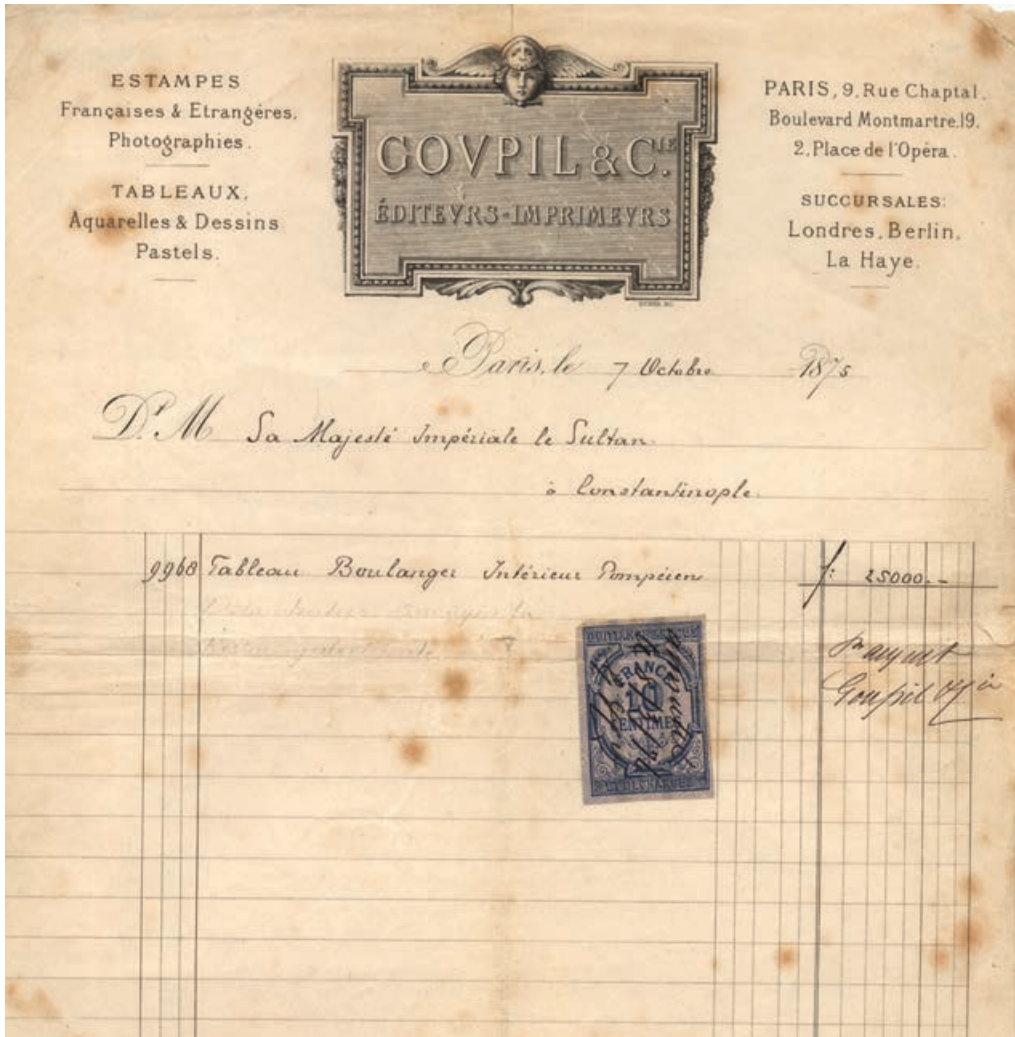 ESTAMPES
Françaises & Etrangères.
Photographies.
TABLEAUX.
Aquarelles & Dessins
Pastels.
GOVPIL & CIE.
ÉDITEVRS-IMPRIMEVRS
PARIS, 9, Rue Chaptal.
Boulevard Montmartre, 19.
2, Place de l'Opéra.
SUCCURSALES:
Londres, Berlin,
La Haye.
Paris, le 7 Octobre 1875
Dt. M Sa Majesté Impériale le Sultan.
à Constantinople.
9968 Tableau Boulanger Intérieur Pompéien f: 25000.-
FRANCE
10
CENTIMES
Pr acquit
Goupil & Cie